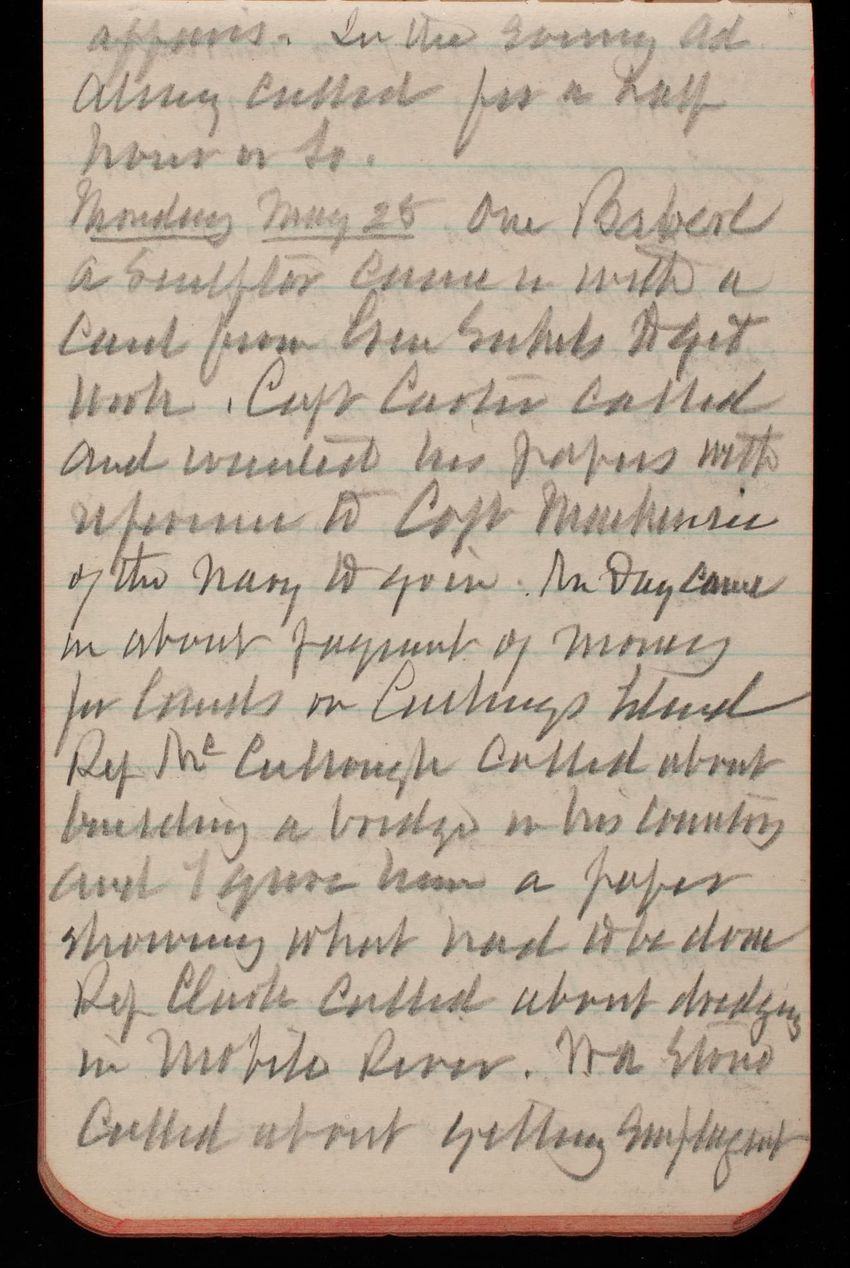 affairs. In the evening Ad
Almy called for a half
hour or so.
Monday May 25 One
a sculptor came in with a
card from Genl to get
work. Capt Carter called
and wanted his papers with
reference to Capt Mackenzie
of the Navy to go in. Mr Day came
in about payment of money
for lands on Cushings Island
Rep McCullough called about
building a bridge in his country
and I gave him a paper
showing what had to be done
Rep Clark called about dredging
in Mobile River. Stone
called about getting employment